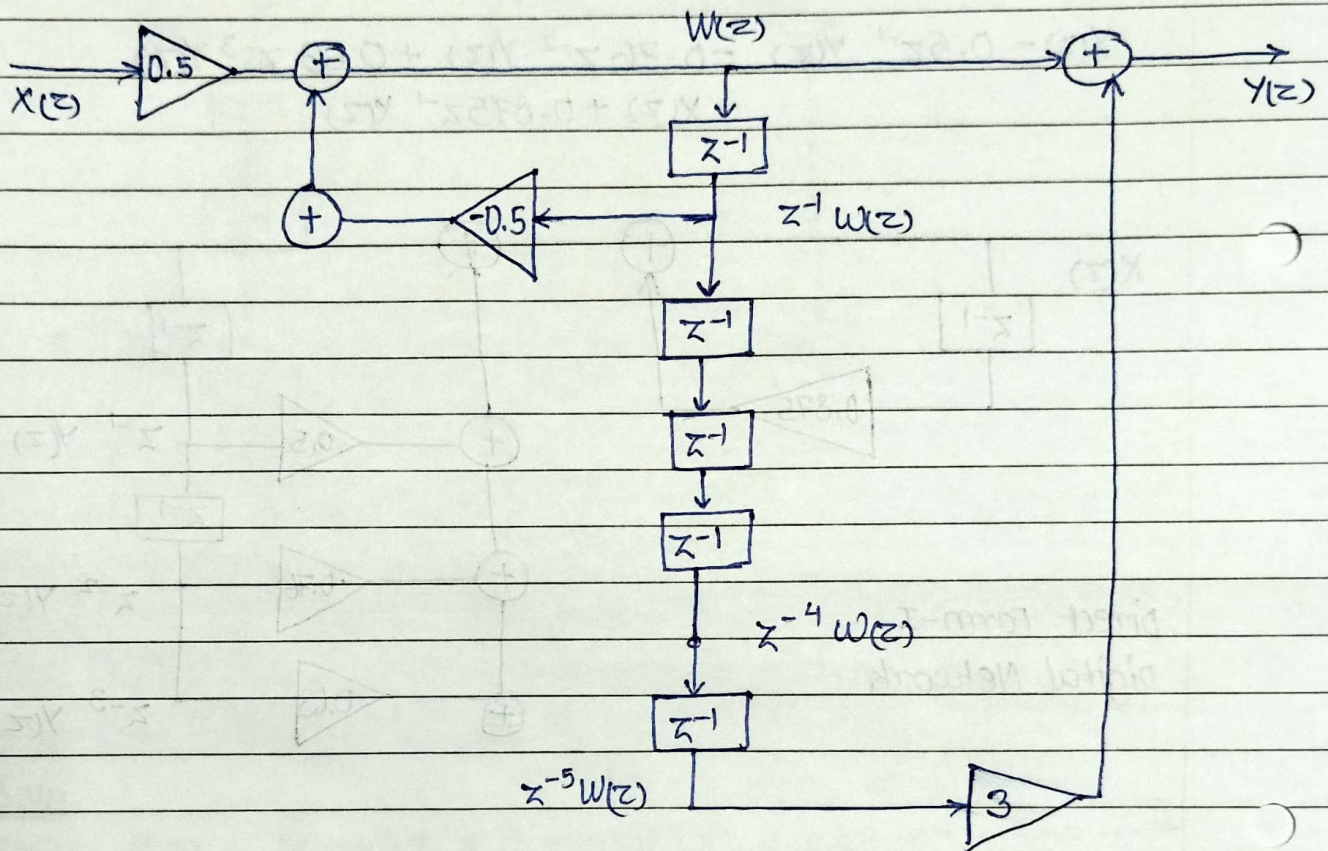 W(z)
0.5 + +
X(z) Y(z)
z⁻¹
+ -0.5 z⁻¹ W(z)
z⁻¹
z⁻¹
z⁻¹
z⁻⁴ W(z)
z⁻¹
z⁻⁵ W(z) 3